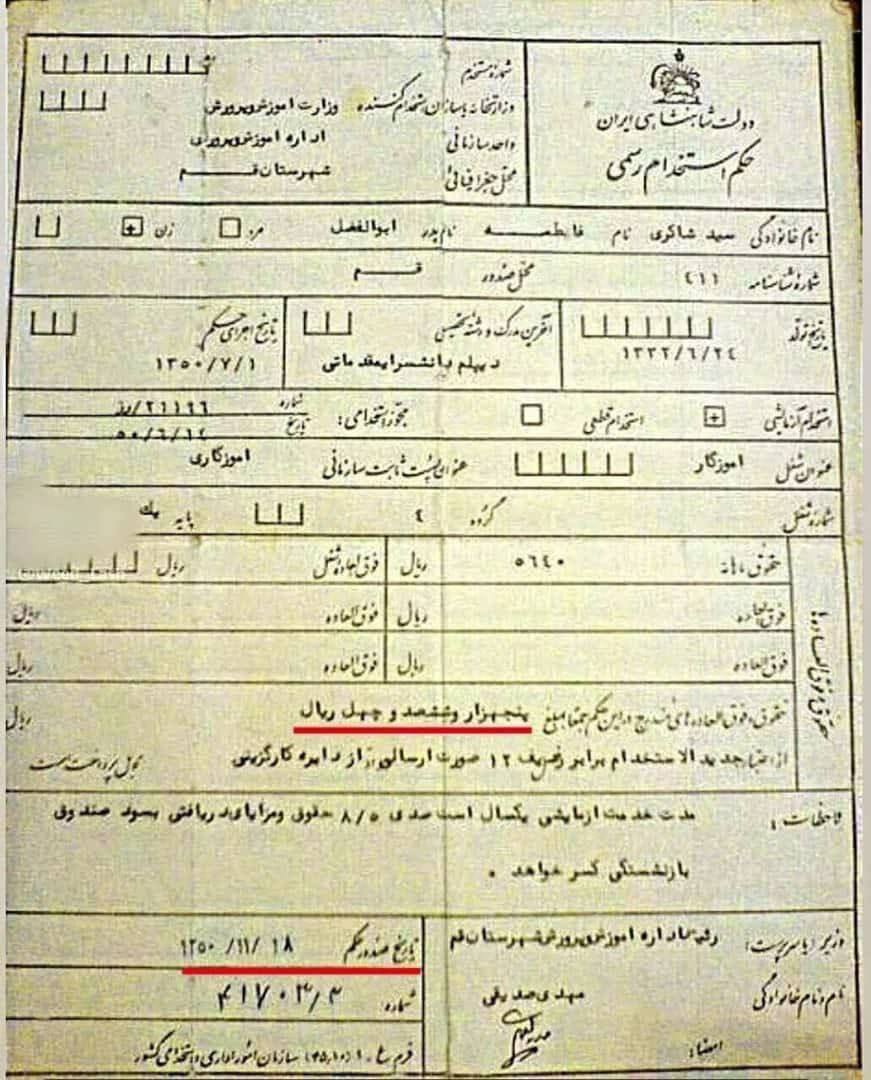 دولت شاهنشاهی ایران
حکم استخدام رسمی
شماره مستخدم
وزارتخانه یا سازمان استخدام کننده وزارت اموزش و پرورش
واحد سازمانی اداره اموزش و پرورش
محل جغرافیائی شهرستان قم
نام خانوادگی سید شاکری نام فاطمه نام پدر ابوالفضل مرد زن
شماره شناسنامه ٤١١ محل صدور قم
تاریخ تولد ١٣٣٢/٦/٢٤
آخرین مدرک و رشته تحصیلی دیپلم دانشسرایمقدماتی
تاریخ اجرای حکم ١٣٥٠/٧/١
استخدام آزمایشی استخدام قطعی مجوز استخدامی: شماره ٢١١٩٦/رز
تاریخ ٥٠/٦/١٤
عنوان شغل اموزگار عنوان پست ثابت سازمانی اموزگاری
شماره شغل گروه ٤ پایه یک
حقوق و فوق العاده ها
حقوق ماهانه ٥٦٤٠ ریال فوق العاده شغل ریال
فوق العاده ریال فوق العاده ریال
فوق العاده ریال فوق العاده ریال
حقوق و فوق العاده های مندرج در این حکم جمعا بمبلغ پنجهزار وششصد و چهل ریال ریال
از اعتبار جدید الاستخدام برابر ردیف ١٢ صورت ارسالی از دایره کارگزینی قابل پرداخت است
ملاحظات : مدت خدمت ازمایشی یکسال است صدی ٨/٥ حقوق ومزایای دریافتی بسود صندوق
بازنشستگی کسر خواهد .
وزیر (یا سرپرست): رئیس اداره اموزش و پرورش شهرستان قم
نام و نام خانوادگی مهدی صدیقی
امضاء:
تاریخ صدور حکم ١٣٥٠/١١/١٨
شماره ٤١٧٠٣/٣
فرم ع ـ ١ (٤٥،١٠) سازمان امور اداری و استخدامی کشور